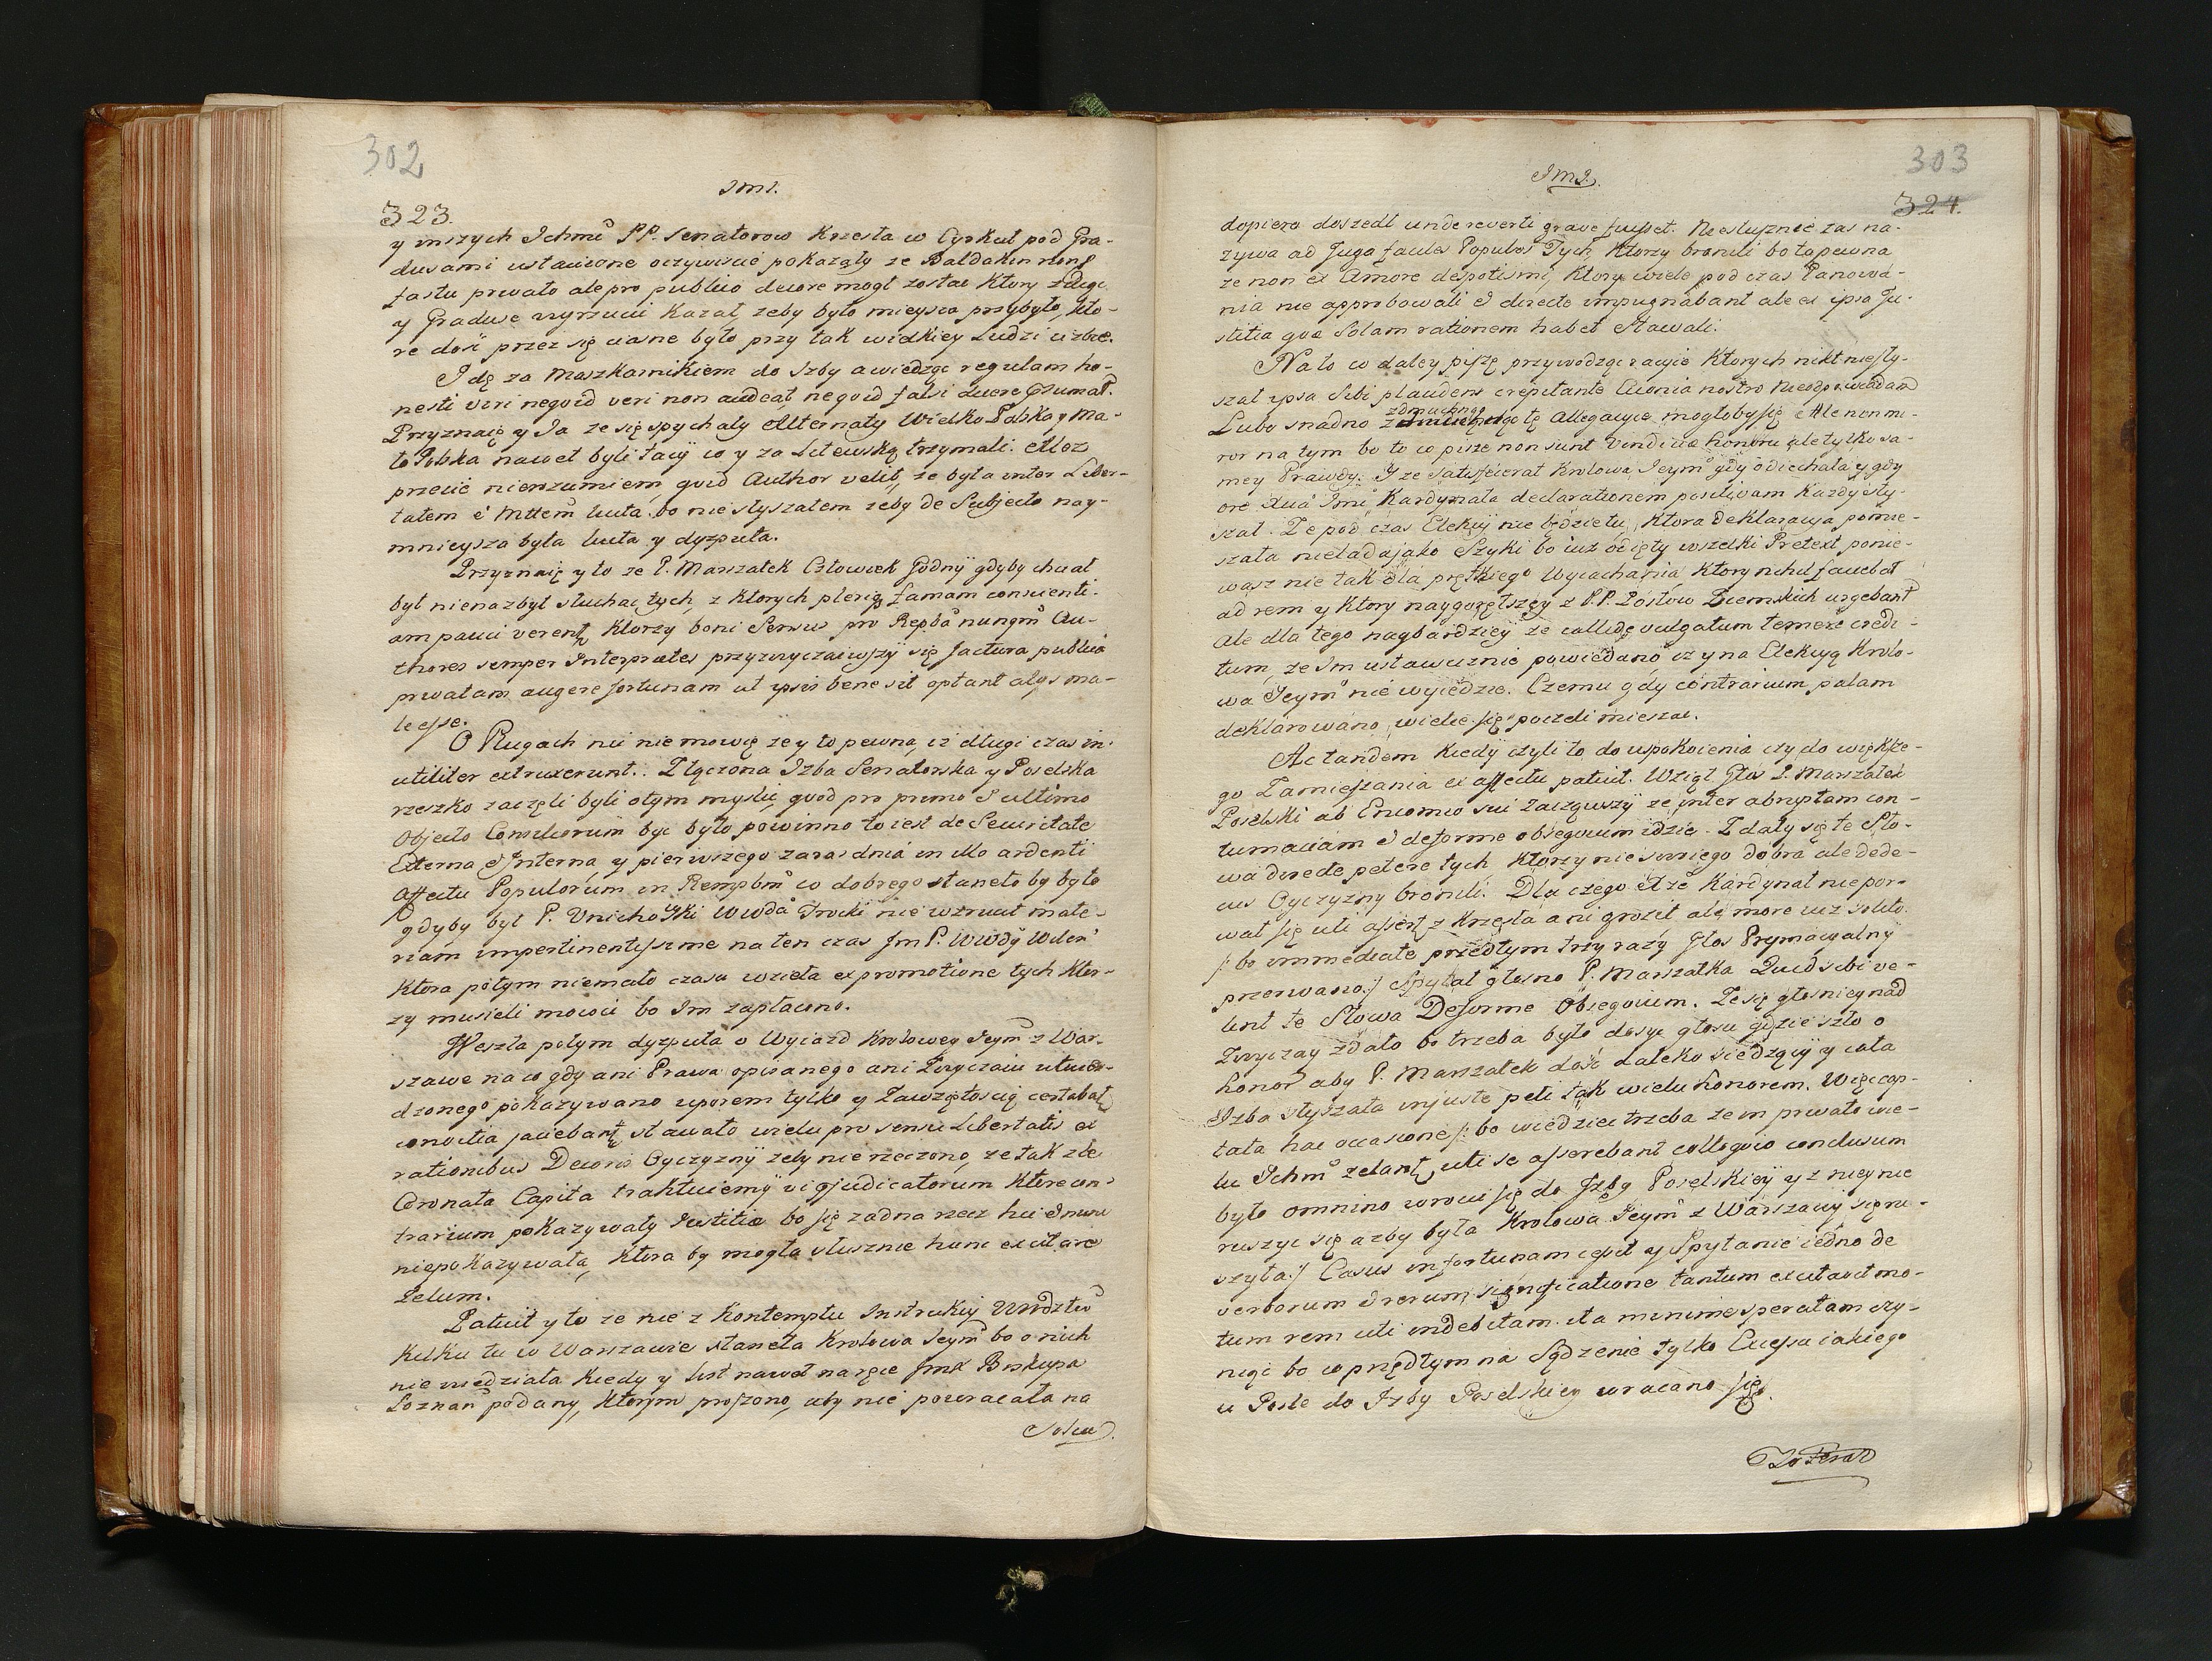 302
Im1.
323.
y inszych Ichmć PP. Senatorow Krzesła w Cyrkuł pod Gra-
dusami ustawione oczywiscie pokazały ze Baldakin non
fastu privato ale pro publico decore mogł zostać Ktory
y Graduse wyrzucić Kazał, zeby było mieysca przybyło, kto-
re dość przez się ciasne było przy tak wielkiey Ludzi cizbie.
Idę za Maszkarnikiem do Izby a wiedząc regulam ho-
nesti viri nequid veri non audeat nequid falsi dicere
Przyznaię y Ia ze się spychały Alternaty Wielko Polska y Ma-
ło Polska nawet byli tacy co y za Litewską trzymali. Atoz
przecie nierozumiem quid Author velit, ze była inter Liber-
tatem & Mttem lucta, bo nie słyszałem zeby de Subjecto nay-
mnieysza była lucta y dysputa.
Przyznaię y to ze P. Marszałek Człowiek godny gdyby chciał
był nienazbyt słuchać tych, z ktorych pleriq famam conscienti-
am pauci verent, Ktorzy boni Sensus pro Repba nunqm Au-
thores semper Interpretes przyzwyczaiwszy się jactura publica
privatam augere fortunam ut ipsis bene sit optant alys ma-
le esse.
O Rugach nic nie mowię ze y to pewna, iz długi czas in-
utiliter extruxerunt. Złączona Izba Senatorska y Poselska
rzeszko zaczęli byli o tym myslić quod pro primo & ultimo
Objecto Consiliorum być było powinno to iest de Securitate
Externa & Interna, y pierwszego zaraz dnia in illo ardenti
Affectu Populorum in Rempbm co dobrego staneło by było
gdyby był P. Wwda Trocki nie wzrucił mate-
riam impertinentissime na ten czas Jm P. Wwdy Wilen
Ktora potym niemało czasu wzieła ex promotione tych Kto-
rzy musieli mowić bo Im zapłacono.
Weszła potym dysputa o Wyiazd Krolowey Jeym z War-
szawe na co gdy ani Prawa opisanego ani Zwyczaiu utwier-
dzonego pokazywano uporem tylko y Zawziętoscią certabat
convitia jaciebant, stawało wielu pro sensu Libertatis ex
rationibus Decoris Oyczyzny zeby nie rzeczono, ze tak zle
Coronata Capita traktuiemy vi judicatorum Ktore con-
trarium pokazywały Justitia bo się zadna rzecz hic & nunc
niepokazywała, Ktora by mogła słusznie hunc excitare
zelum.
Patuit y to ze nie z Kontemptu Instrukcij Wwdztw
Kilku tu w Warszawie staneła Krolowa Jeym bo o nich
nie wiedziała Kiedy y list nawet na ręce Jmk Biskupa
Poznań podany, Ktorym proszono, aby nie powracała na
303
Im1.
324.
dopiero doszedł unde reverti grave fuisset. Niesłusznie zas na-
zywa ad Juga faciles Populos Tych, Ktorzy bronili bo to pewna
ze non ex Amore despotismi, Ktory wiele pod czas Panowa-
nia nie approbowali & directe impugnabant ale ex ipsa Ju-
stitia quæ Solam rationem habet stawali.
Na to co daley pisze przywodząc racyie Ktorych nikt niesły-
szał ipsa Sibi plaudens crepitante Ciconia rostro nieodpowiadam
Lubo snadno tę Allegacyie mogłoby się Ale non mi-
ror na tym bo to co pisze non sunt Vindiciæ honoru ale tylko sa-
mey Prawdy. Y ze satisfecerat Krolowa Jeym gdy odiechała y gdy
ore suo Jmć Kardynała declarationem positivam Kazdy sły-
szał. Ze pod czas Elekcij nie będzie tu, Ktora deklaracya pomie-
szała nielada jako Szyki bo iuz odięty wszelki Pretext ponie-
wasz nie tak dla prętkiego Wyiachania Ktory nihil faciebat
ad rem y Ktory naygoręlszey z P.P. Posłow Ziemskich urgebant
Ale dla tego naybardziey ze callide vulgatum temere credi-
tum, ze Im ustawicznie powiedano iz y na Elekcyą Krolo-
wa Jeym nie wyiedzie. Czemu gdy contrarium palam
deklarowano, wielce się poczeli mieszać.
Ac tandem Kiedy czyli to do uspokoienia czy do większe-
go Zamieszania ex affectu patuit. Wziął Głos P. Marszałek
Poselski ab Encomio sui Zacząwszy ze inter abruptam con-
tumaciam & deforme obsequium idzie. Zdały się te Sło-
wa directe petere tych, Ktorzy nie swoiego dobra ale dede-
cus Oyczyzny bronili. Dla czego Xze Kardynał niepor-
wał się uti assert z Krzesła ani groził, ale more iuz solito.
/: bo immediate przedtym trzy razy Głos Prymacyalny
przerwano./ Spytał głosno P. Marszałka Quid sibi ve-
lint te Słowa Deforme Obsequium. Ze się głosniey nad
Zwyczay zdało bo trzeba było dosyc głosu gdzie szło o
honor aby P. Marszałek dość daleko siedzący y cała
Izba słyszała injuste peti tak wielu honorem. Więc cap-
tata hac occasione /: bo wiedziec trzeba ze in privato wie-
lu Ichm zelant, uti se asserebant colloquio conclusum
było omnino wrocić się do Izby Poselskiey y z niey nie
ruszyć się azby była Krolowa Jeym z Warszawy się ru-
szyła:/ Casus in fortunam cessit y Spytanie iedno de
verborum & rerum significatione tantum excitavit mo-
tum rem uti indebitam ita minime speratam czy-
niąc bo co przedtym na Sądzenie tylko Excessu iakiego
u Posle do Izby Poselskiey wracano się.